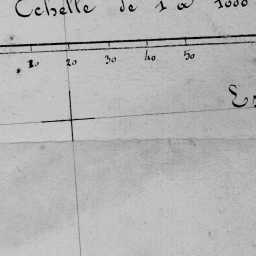 Echelle de 1 a 1000
10 20 30 40 50